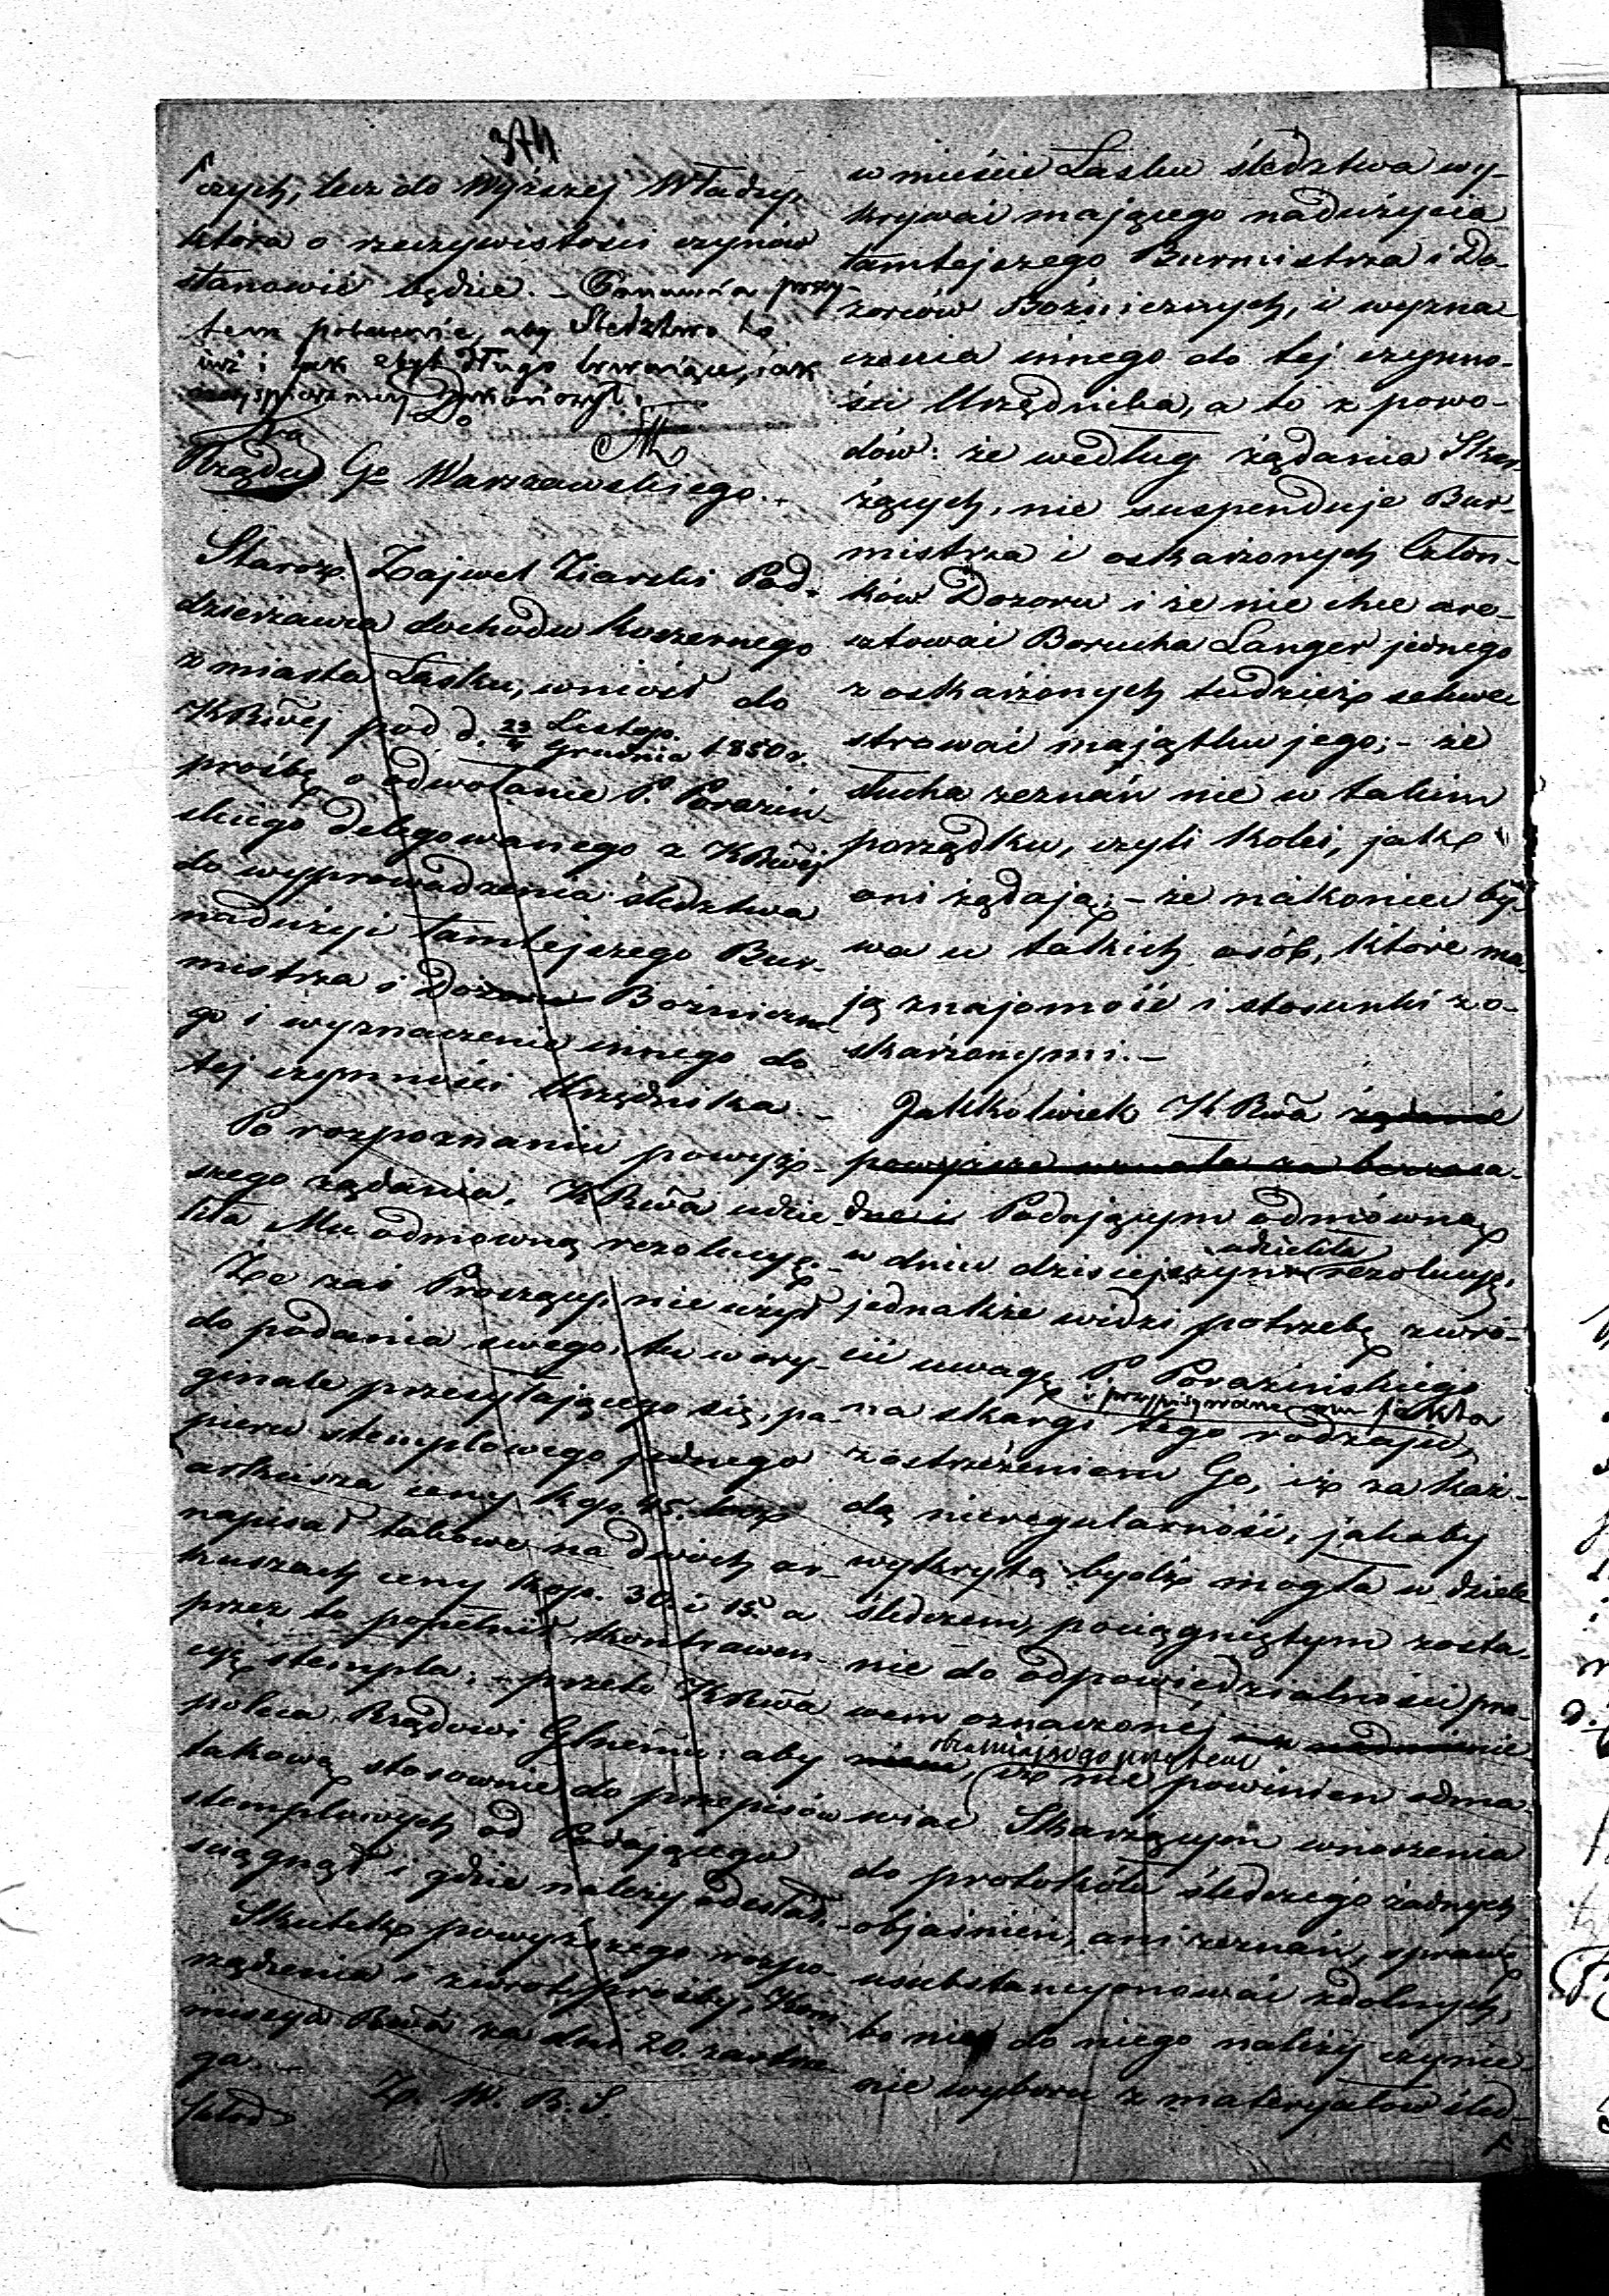 374
czych, lecz do Wyższej Władzy,
która o rzeczywistości czynów
stanowić będzie. – przy-
tem polecenie, aby Śledztwo to
już i tak zbyt długo trwające, jak
najspieszniej ukończył.
Do
Rządu Go Warszawskiego.
Staroz. Zajwel Ziarski Pod-
dzierżawca dochodu koszernego
z miasta Łasku, wniósł do
KRwej pod d. 23 Listop. / 4 Grudnia 1850 r.
prośbę o odwołanie P. Poraziń-
skiego delegowanego z KRwej
do wyprowadzenia śledztwa
nadużyć tamtejszego Bur-
mistrza i Dozoru Bożniczne-
go i wyznaczenie innego do
tej czynności Urzędnika. –
Po rozpoznaniu powyż-
szego żądania, KRwa udzie-
liła Mu odmowną rezolucyę. –
Że zaś Proszący, nie użył
do podania swego, tu w ory-
ginale przesyłającego się, pa-
pieru stemplowego jednego
arkusza ceny kop. 45. lecz
napisał takowe na dwóch ar-
kuszach ceny kop. 30. i 15. a
przez to popełnił kontrawen-
cyę stempla; – przeto KRwa
poleca Rządowi Glnemu: aby
takową stosownie do przepisów
stemplowych od Podającego
ściągnął i gdzie należy odesłał. –
Skutek powyższego rozpo-
rządzenia i zwrot prośby, Kom-
missya Rwa za dni 20. zastrze-
ga. –
Z. W. B. S.
w mieście Łasku śledztwa wy-
krywać mającego nadużycia
tamtejszego Burmistrza i Do-
zorców Bożniczych, i wyzna-
czenia innego do tej czynno-
ści Urzędnika, a to z powo-
dów: że według żądania Skar-
żących, nie suspenduje Bur-
mistrza i oskarżonych Człon-
ków Dozoru i że nie chce are-
sztować Borucha Langer jednego
z oskarżonych tudzież sekwe-
strować majątku jego; – że
słucha zeznań nie w takim
porządku, czyli kolei, jak
oni żądają; – że nakoniec by-
wa u takich osób, które ma-
ją znajomość i stosunki z o-
skarżonymi. –
Jakkolwiek KRwa żądanie
powyższe uznała za bezzasa-
dne i Podającym odmowną
w dniu dzisiejszym udzieliła rezolucyę,
jednakże widzi potrzebę zwró-
cić uwagę P. Porazińskiego
na skargi tego rodzaju,
zastrzeżeniem Go, iż za każ-
dą nieregularność, jakaby
wykrytą bydź mogła w dziele
śledczem, pociągniętym zosta-
nie do odpowiedzialności pra-
wem oznaczonej
iż nie powinien odma-
wiać Skarżącym wnoszenia
do protokółu śledczego żadnych
objaśnień, ani zeznań, sprawę
usubstancyonować zdolnych,
bo nie do niego należy czynie-
nie wyboru z materyałów śled-